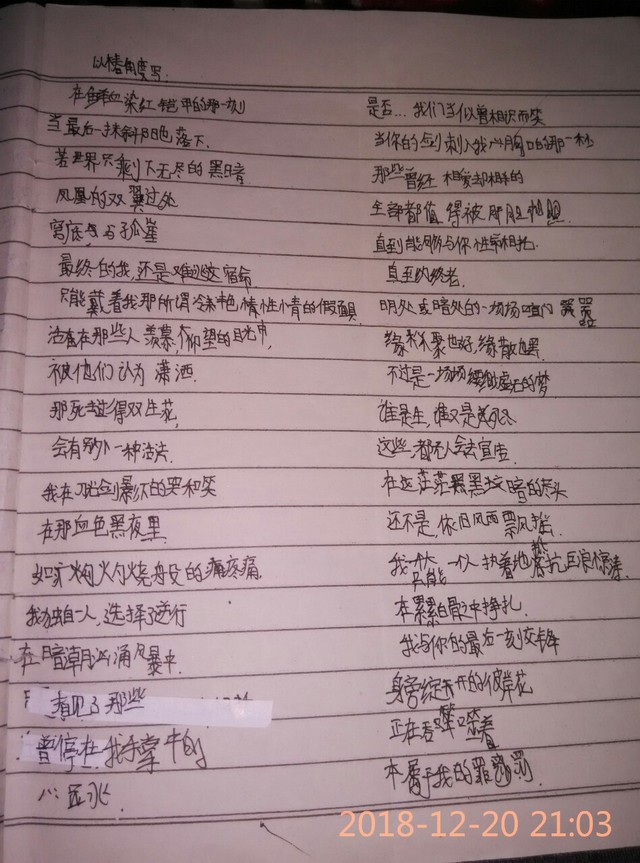 以情角度写.
在鲜血染红铠甲的那一刻
当最后一抹斜阳也落下.
若世界只剩下无尽的黑暗
凤凰的双翼过处
宫底与孤崖
最终的我,还是难逃这宿命
只能戴着我那所谓 情性情的假面具
活在那些人羡慕,仰望的目光中,
被他们认为潇洒.
那死去彼得双生花,
会有另外一种活法.
我在刀光剑影下的哭和笑
在那血色黑夜里.
如灼灼烧般的痛疼痛.
我独自一人,选择了逆行
在暗潮汹涌风暴中.
看见了那些
曾停在我手掌中的
是否…我们当似曾相识而笑
当你的剑刺入我胸口的那一秒
那些曾经相爱却相杀的
全部都值得被
直到能够与你性命相托.
直至终老.
明处或暗处的一场场喧闹
缘来不聚也好,缘散也罢.
不过是一场场缥缈虚无的梦
谁是生,谁又是死
这些,都无人会去宣告.
在这茫茫黑暗的尽头
还不是,依旧风雨飘摇.
我一个人 只能一人执着地抵抗巨浪惊涛.
在累累白骨之中挣扎.
我与你的最后一刻交锋
身旁绽开的彼岸花
正在吞噬着
本属于我的罪罚
2018-12-20 21:03